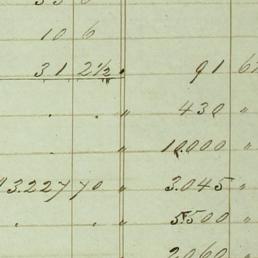 10 6
31 2½ " 91 6
. . " 430 "
" 10.000 "
3.227 70 " 3.045 "
. . " 5.500 "
2.060